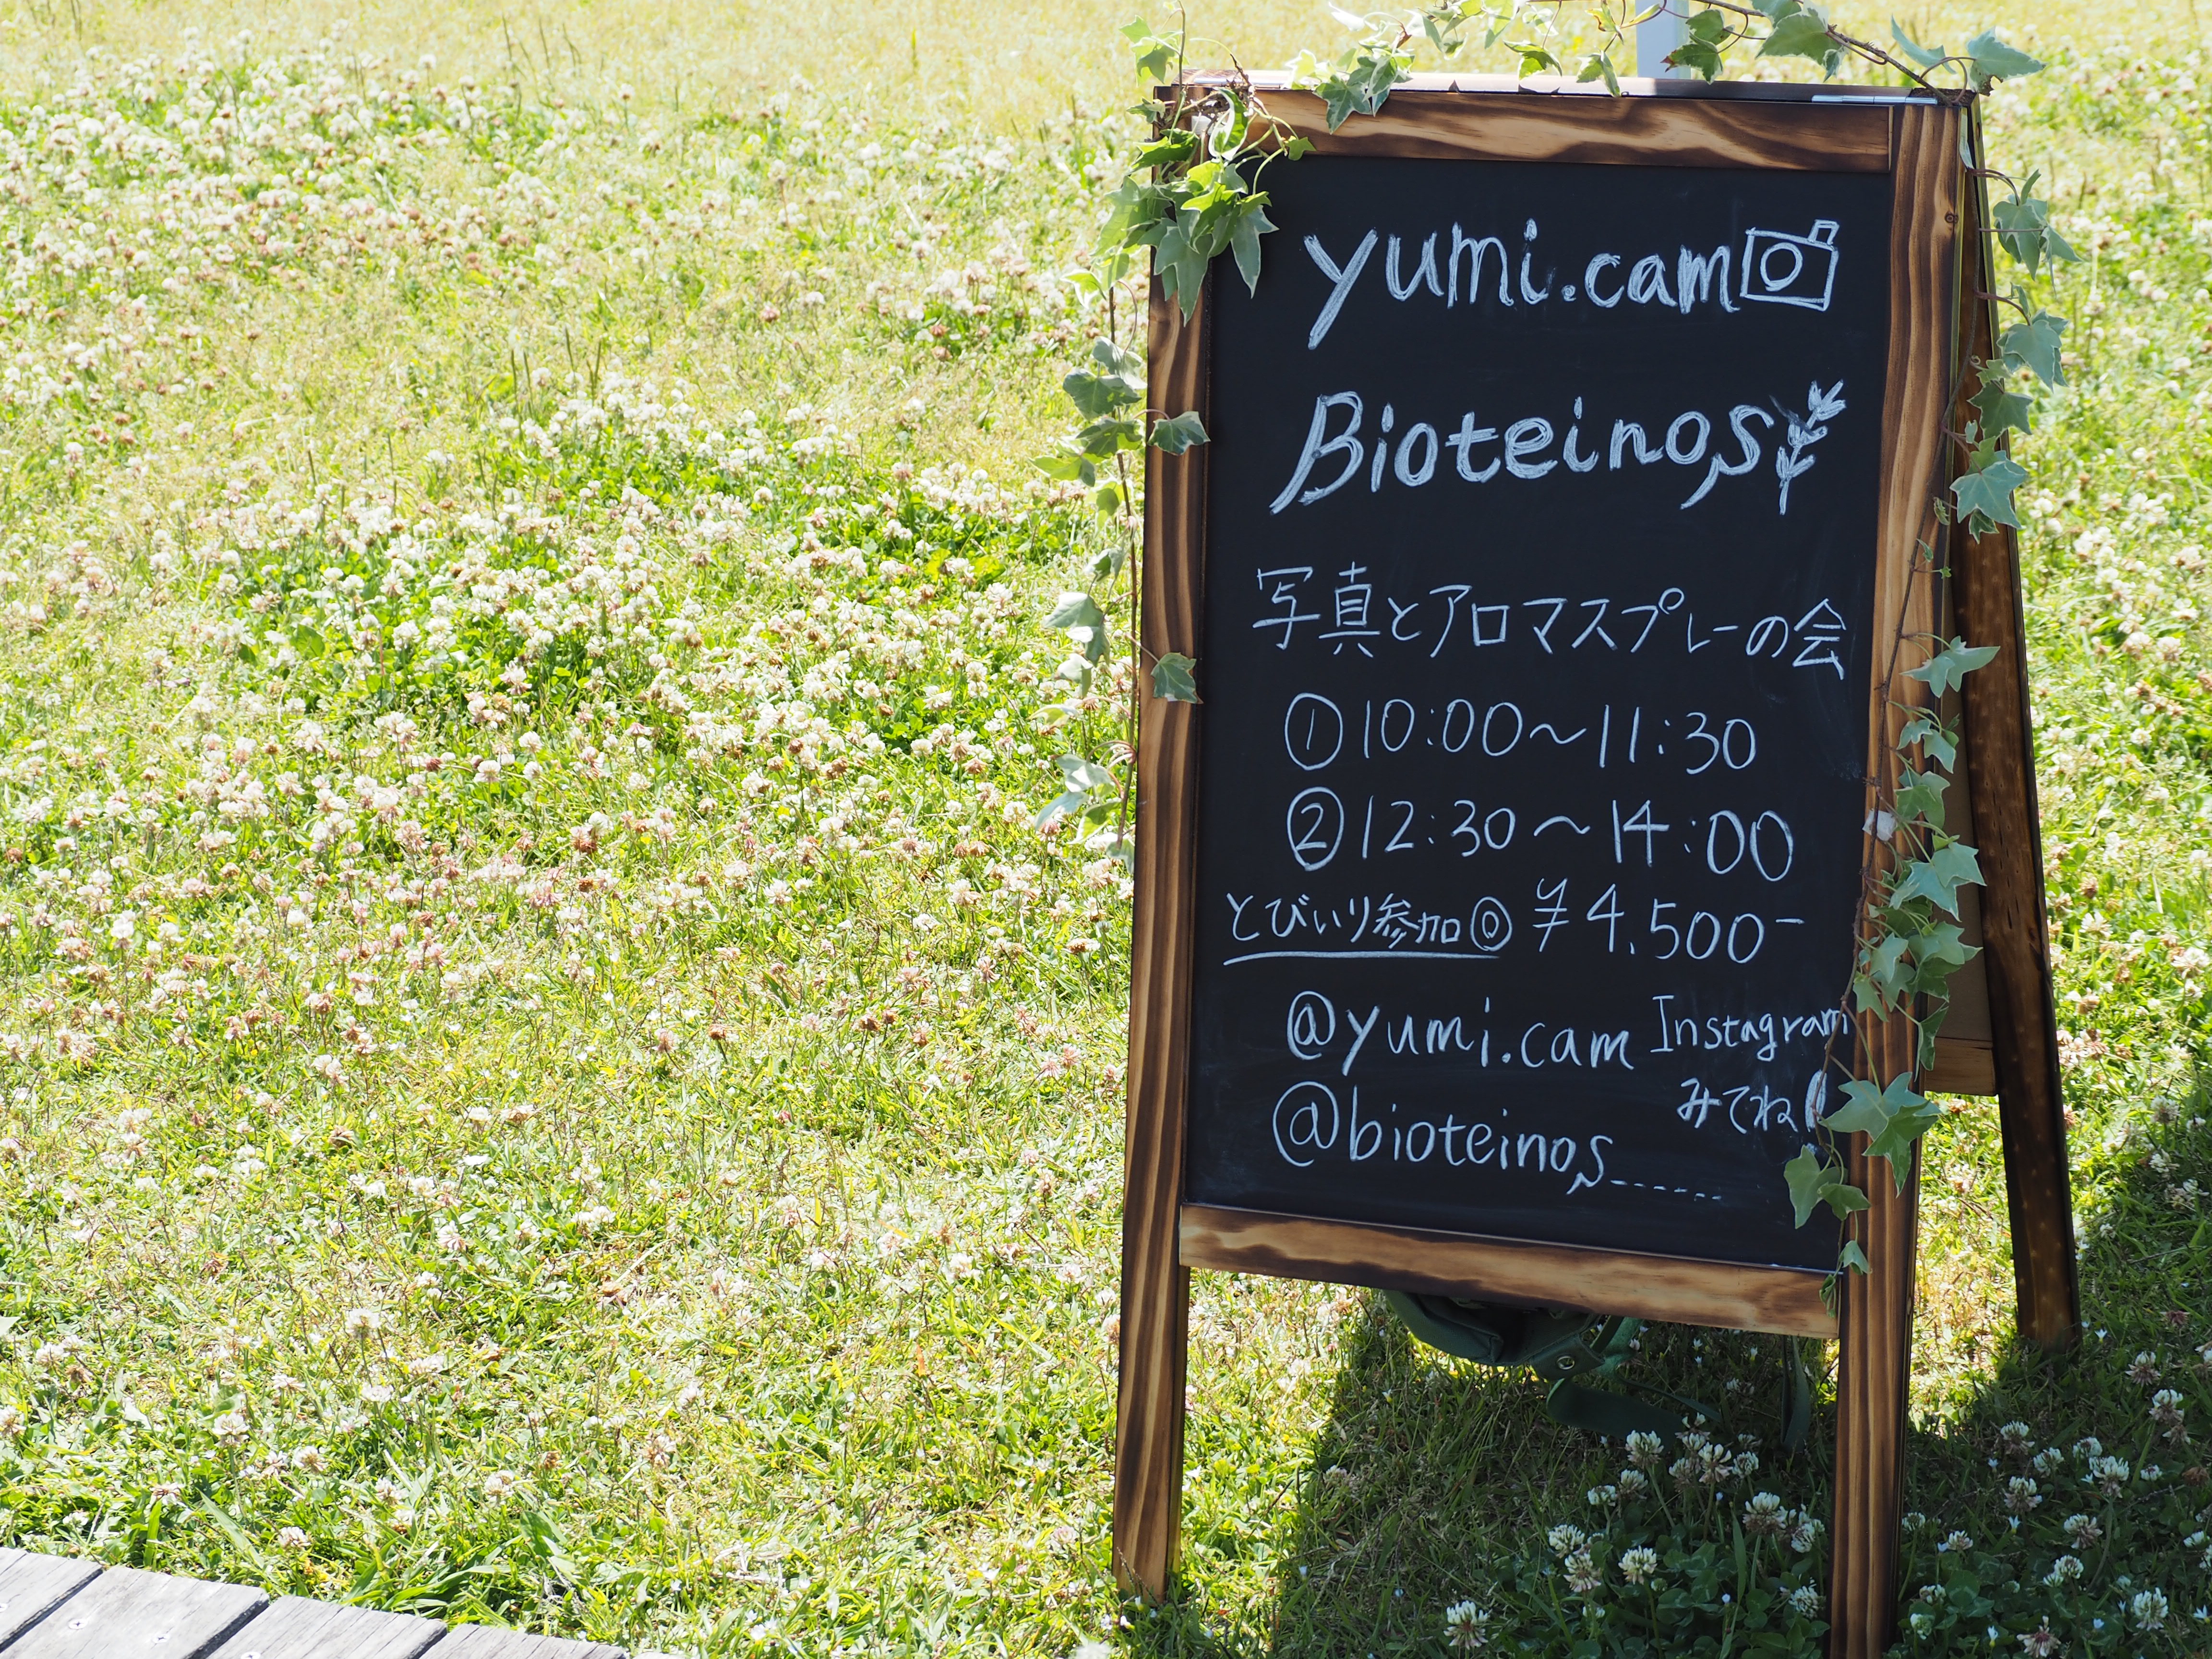 yumi.cam
Bioteinos
写真とアロマスプレーの会
①10:00〜11:30
②12:30〜14:00
とびいり参加◎ ¥4.500-
@yumi.cam Instagram
みてね!
@bioteinos